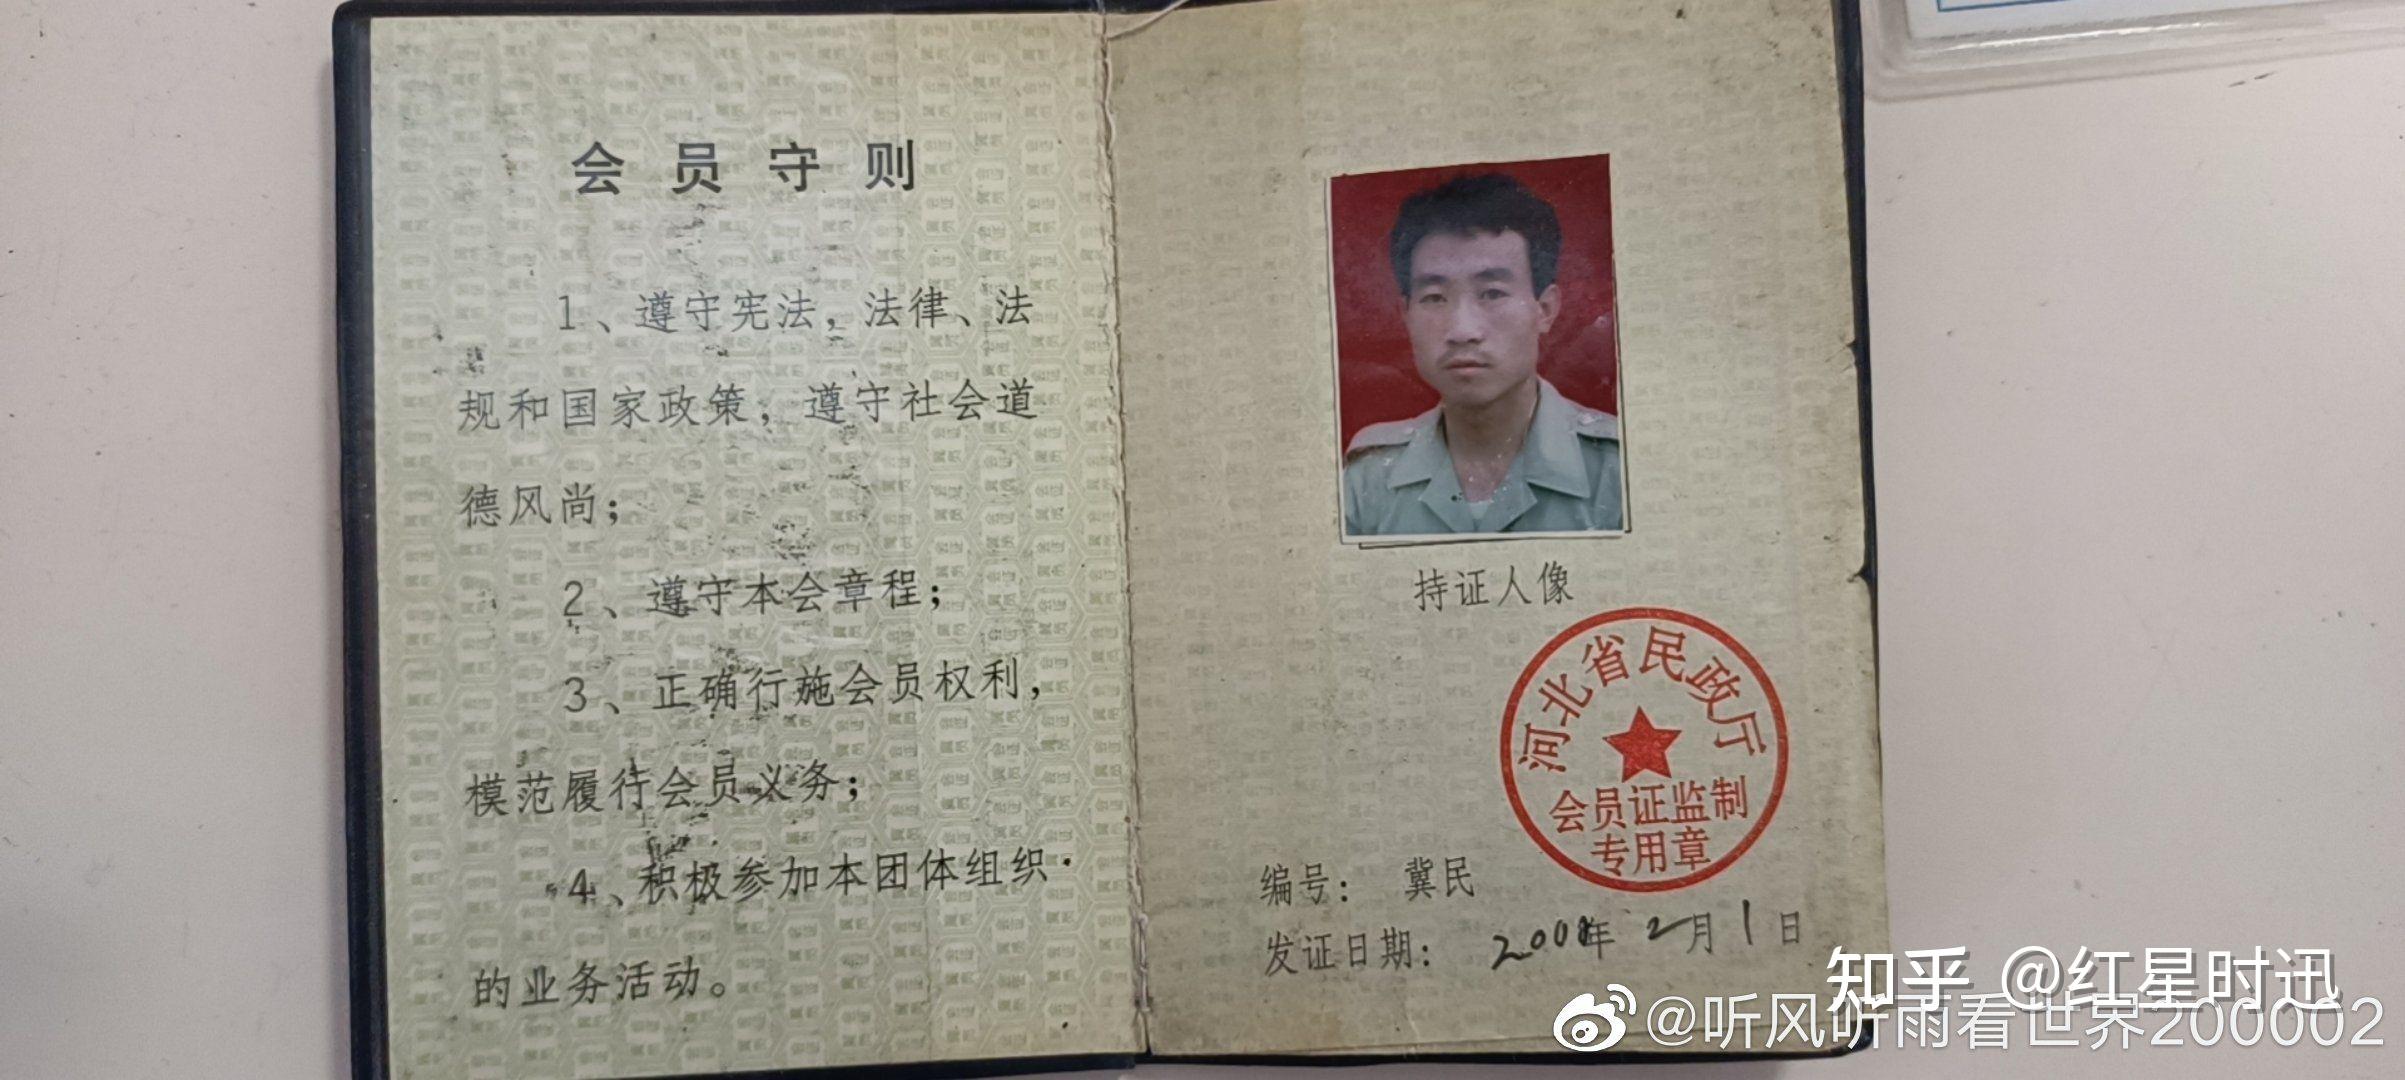 会员守则
1、遵守宪法，法律、法
规和国家政策，遵守社会道
德风尚；
2、遵守本会章程；
3、正确行施会员权利，
模范履行会员义务；
4、积极参加本团体组织
的业务活动。
持证人像
河北省民政厅
会员证监制
专用章
编号： 冀民
发证日期： 2000年2月1日
知乎 @红星时讯
@听风听雨看世界200002